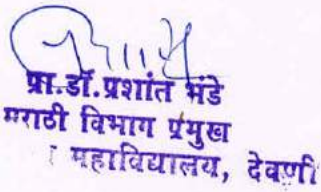 प्रा.डॉ.प्रशांत भंडे
मराठी विभाग प्रमुख
महाविद्यालय, देवणी